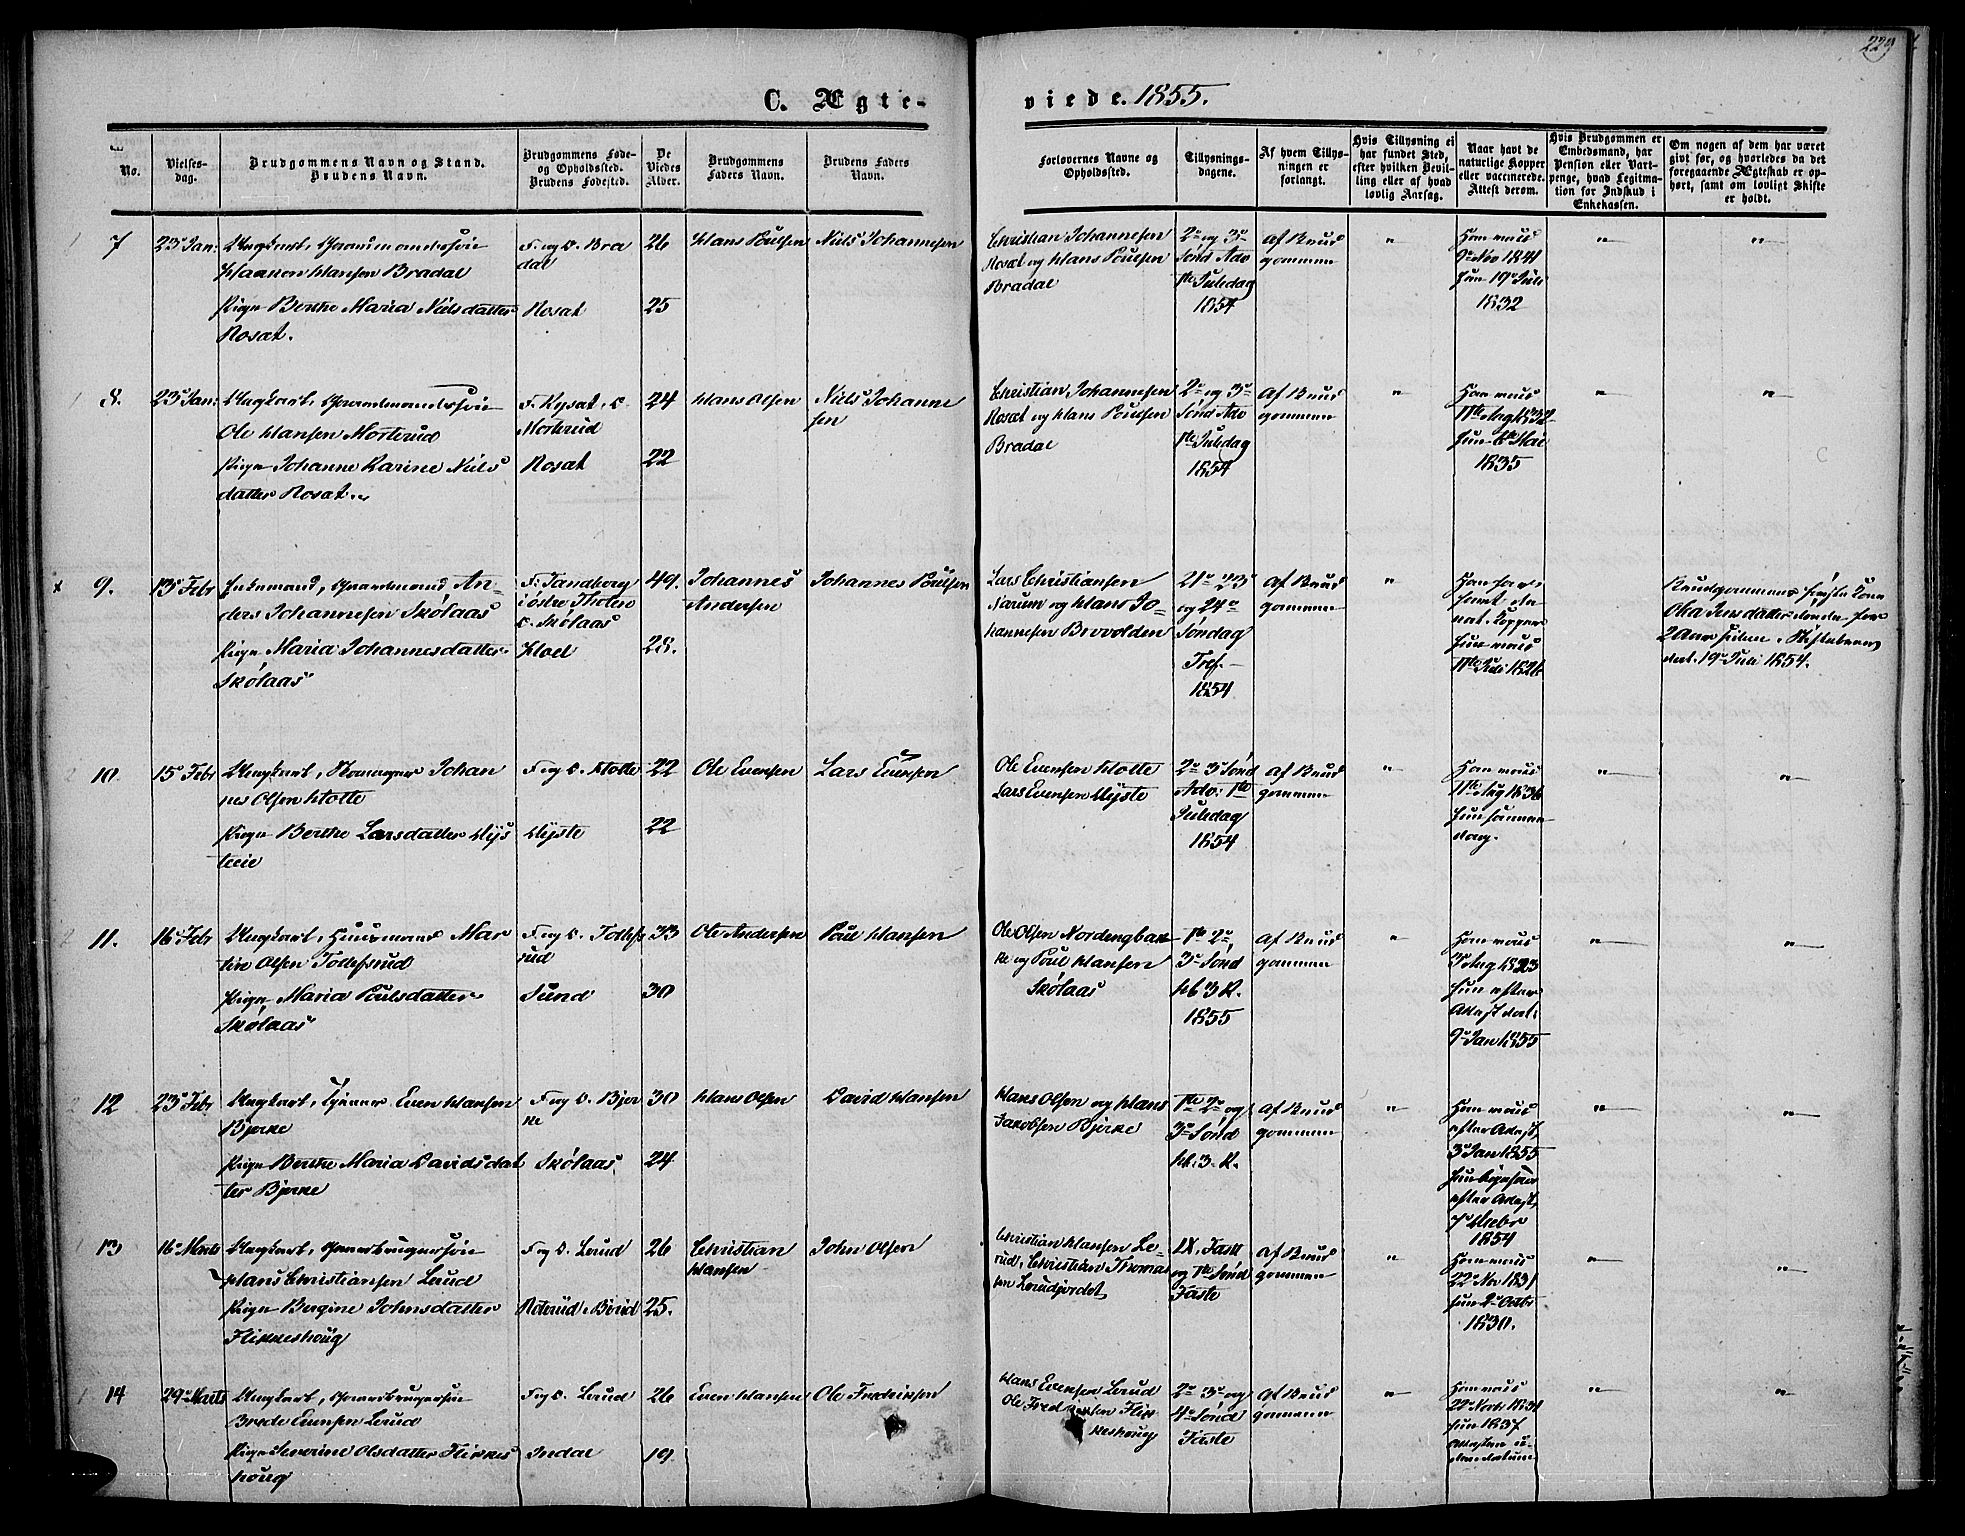 229
C. Ægte-
viede. 1855.
No.
Vielses-
dag.
Brudgommens Navn og Stand.
Brudens Navn.
Brudgommens Føde-
og Opholdssted.
Brudens Fødested.
De
Viedes
Alder.
Brudgommens
Faders Navn.
Brudens Faders
Navn.
Forlovernes Navne og
Opholdssted.
Tillysnings-
dagene.
Af hvem Tillys-
ningen er
forlangt.
Hvis Tillysning ei
har fundet Sted,
efter hvilken Bevil-
ling eller af hvad
lovlig Aarsag.
Naar havt de
naturlige Kopper
eller vaccinerede.
Attest derom.
Hvis Brudgommen er
Embedsmand, har
Pension eller Vart-
penge, hvad Legitima-
tion for Indskud i
Enkekassen.
Om nogen af dem har været
givt før, og hvorledes da det
foregaaende Ægteskab er op-
hørt, samt om lovligt Skifte
er holdt.
7
23de Jan:
Ungkarl, Gaardmandssøn
Haagen Hansen Bradal
Pige Berthe Maria Nielsdatter
Rosat.
F. og O. Bra
dal
Rosat
26
25
Hans Poulsen
Niels Johannesen
Christian Johannesen
Rosat og Hans Poulsen
Bradal
2den og 3die
Sønd Adv
1ste Juledag
1854
Af Brud
gommen
"
Ham vacc
9de Nov 1841
Hun 19de Juli
1832
"
"
8.
23de Jan:
Ungkarl, Gaardmandssøn
Ole Hansen Morterud
Pige Johanne Karine Niels
datter Rosat.
F. Rysat, O.
Morterud
Rosat
24
22
Hans Olsen
Niels Johanne
sen
Christian Johannesen
Rosat og Hans Poulsen
Bradal
2den og 3die
Sønd Adv
1ste Juledag
1854
Af Brud
gommen
"
Ham vacc
11te Aug 1832
Hun 6te Mai
1835
"
"
9.
13de Febr
Enkemand, Gaardmand, An-
ders Johannesen Skølaas
Pige Maria Johannesdatter
Skølaas
F: Sandberg
i østre Thoten
O. Skølaas
Kloel
49.
28.
Johannes
Andersen
Johannes Poulsen
Lars Christiansen
Narum og Hans Jo-
hannesen Brovolden
21de 23de
og 24de
Søndag
Tref.
1854
Af Brud
gommen
"
Ham har
havt de
nat. Kopper
Hun vacc
11te Juli 1826
Brudgommens første Kone
Olia Jensdatter døde for
2 Aar siden. Skiftebevis
dat. 19de Juli 1854.
10.
15de Febr
Ungkarl, Skomager Johan
nes Olsen Holte
Pige Berthe Larsdatter Hys
teeie
F. og O. Holte
Hyste
22
22
Ole Evensen
Lars Evensen
Ole Evensen Holte
Lars Evensen Hyste
2den 3die Sønd
Adv: 1ste
Juledag
1854
Af Brud
gommen
"
Ham vacc
11te Aug 1836
Hun samme
dag.
"
"
11.
16de Febr
Ungkarl, Huusmand Mar
tin Olsen Tollefsrud
Pige Maria Poulsdatter
Skølaas
F. og O. Tollefs
rud
Sund
33
30
Ole Andersen
Poul Hansen
Ole Olsen Nordengbak
ke og Poul Hansen
Skølaas
1ste 2den
3die Sønd
H 3 K.
1855
Af Brud
gommen
"
Ham vacc
3die Aug 1823
Hun efter
Attest dat.
9de Jan 1855
"
"
12
23de Febr
Ungkarl, Tjener Even Hansen
Bjerke
Pige Berthe Maria Davidsdat
ter Bjerke
F. og O. Bjer
ke
Skølaas
30
24
Hans Olsen
David Hansen
Hans Olsen og Hans
Jakobsen Bjerke
1ste 2den og
3die Sønd
H. 3. K.
Af Brud
gommen
"
Ham vacc
efter Attest
3 Jan 1855
Hun ligesaa
efter Attest
7de
1854
"
"
13
16de Marts
Ungkarl, Gaardbrugersøn
Hans Christiansen Lerud
Pige Bergine Johnsdatter
Flikkeshoug
F. og O. Lerud
Roterud i Børud
26
25.
Christian
Hansen
John Olsen
Christian Hansen Le-
rud, Christian Thomas
sen Lerudjordet
Fast
og 1ste Sønd
Faste
Af Brud
gommen
"
Ham vacc
22de Nov 1831
Hun 2den Octbr
1830.
"
14
29de Marts
Ungkarl, Gaardbrugersøn
Brede Evensen Lerud
Pige Severine Olsdatter Flikkes
houg
F. og O. Lerud
Indal
26
19.
Even Hansen
Ole Fredriksen
Hans Evensen Lerud
Ole Fredriksen Flik
keshoug
2den 3die og
4de Sønd
Faste
Af Brud
gommen
"
Ham vacc
22de Novbr 1831
Hun 1837
Attesten u-
den Datum
"
"